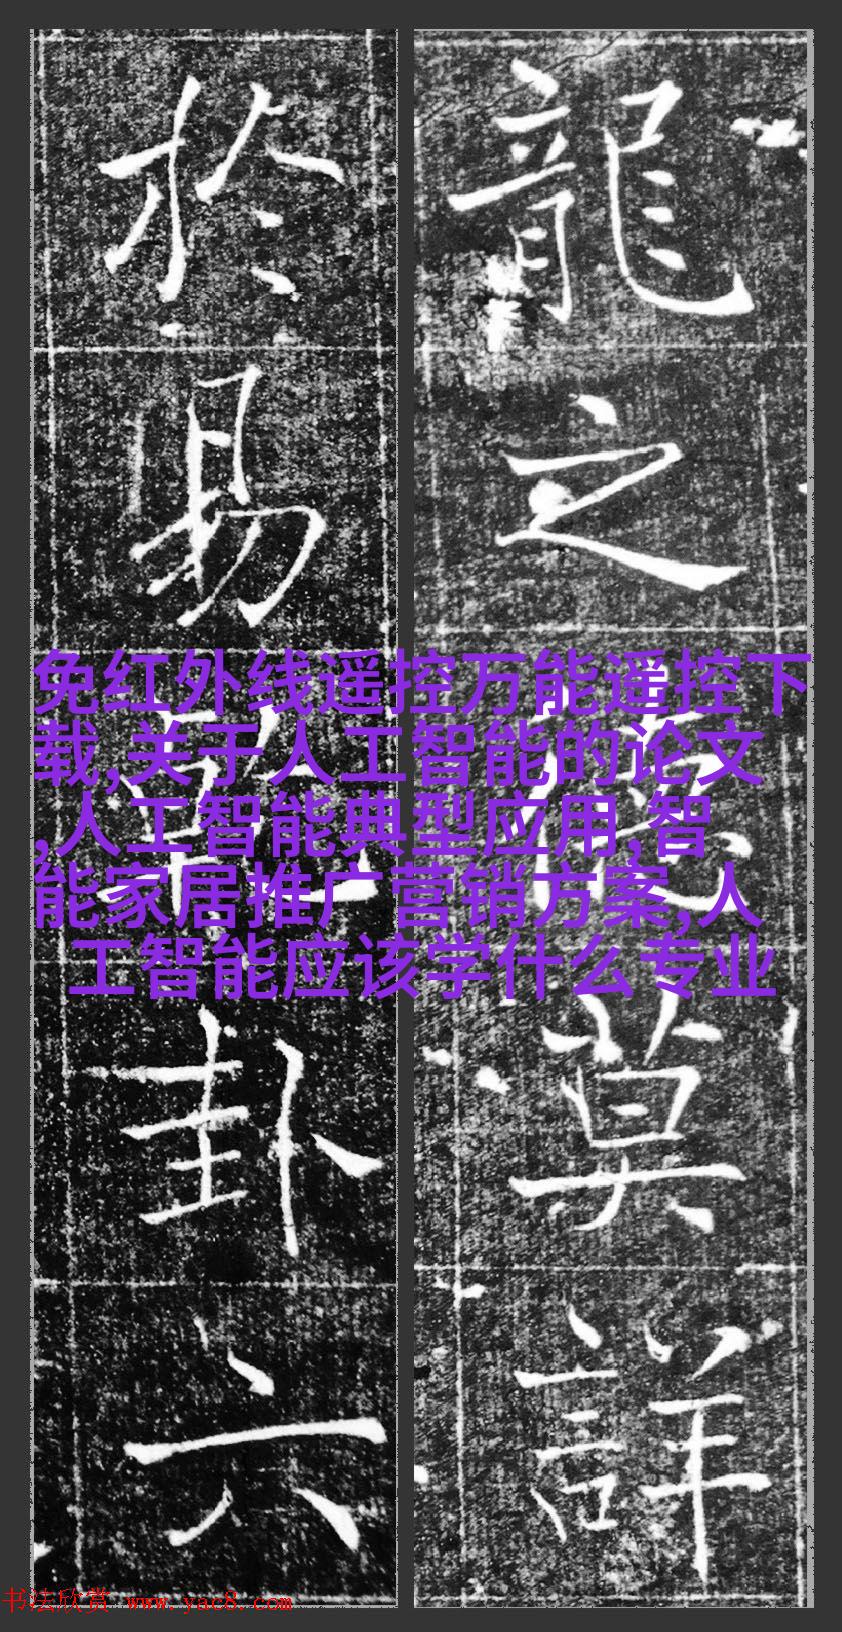 龍之莫詳
於易卦六
免红外线遥控万能遥控下
载,关于人工智能的论文
,人工智能典型应用,智
能家居推广营销方案,人
工智能应该学什么专业
书法欣赏 www.yac8.com